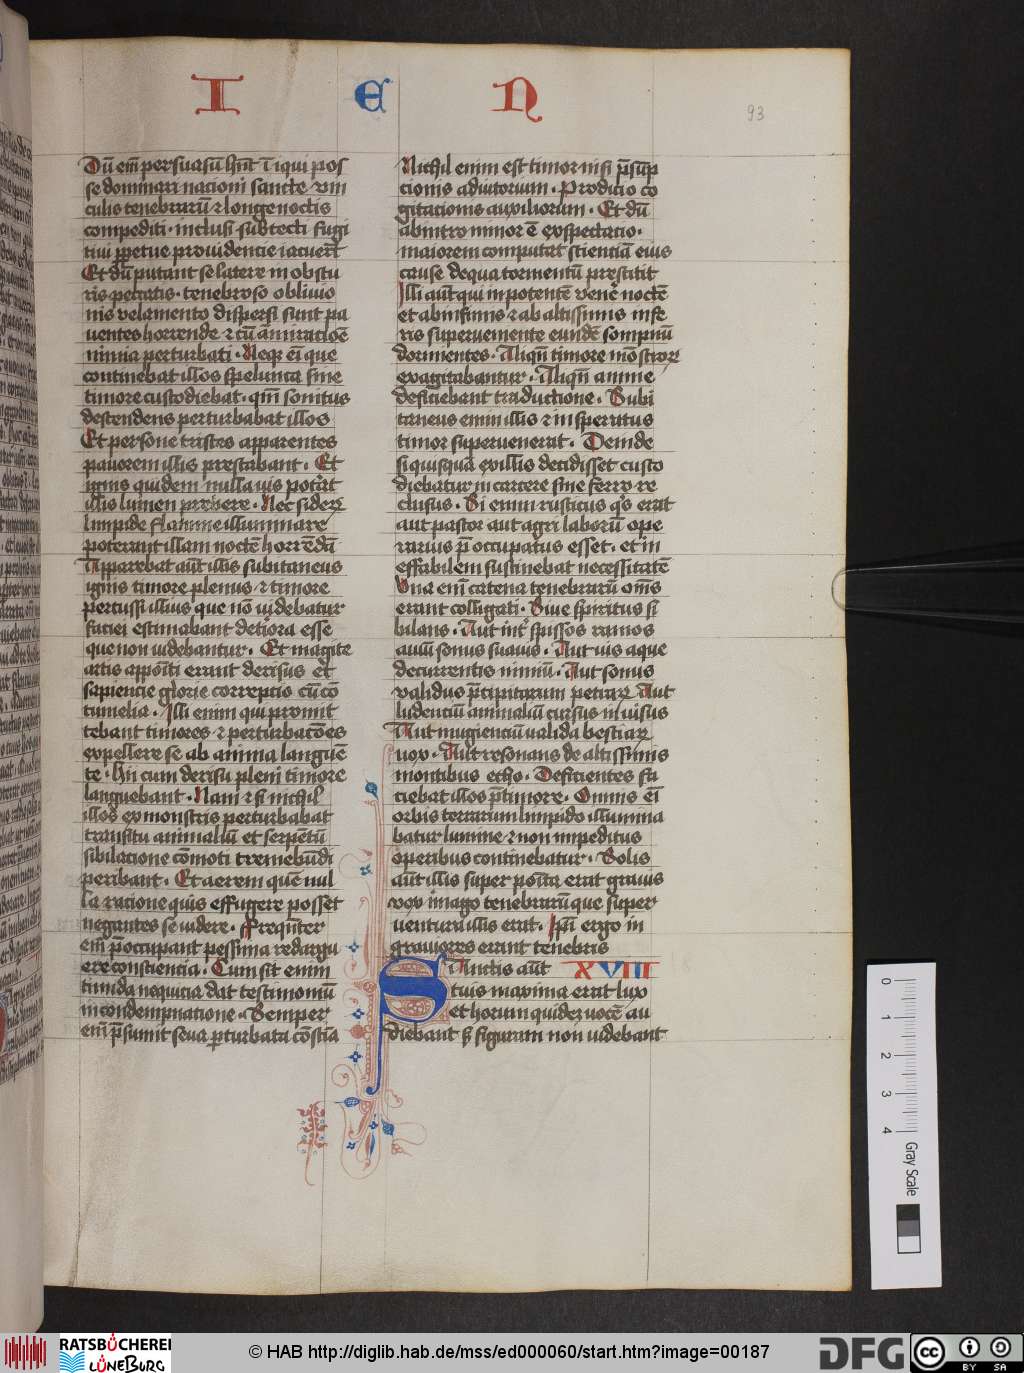 I E N
93
Dū em̄ persuasū hn̄t ī iqui pos
se dominari nacioni sancte vin
culis tenebrarū ⁊ longe noctis
compediti · inclusi sub tecti fugi
tiui ꝑpetue prouidencie iacuerūt
Et dū putant se latere in obscu
ris peccatis · tenebroso obliuio
nis velamento dispersi sunt pa
uentes horrende ⁊ cū āmiracōe
nimia perturbati · Neqꝫ eī que
continebat illos spelunca sine
timore custodiebat · qm̄ sonitus
descendens perturbabat illos
Et persone tristes apparentes
pauorem illis prestabant · Et
ignis quidem nulla uis pot̄at
illis lumen prebere · Nec siderꝝ
limpide flamme illuminare
poterant illam noctē horrēdā
Apparebat aūt illis subitaneus
ignis timore plenus · ⁊ timore
percussi illius que nō uidebatur
faciei estimabant det̄iora esse
que non uidebantur · Et magice
artis appōiti erant derisus et
sapiencie glorie correptio cū cō
tumelia · Illi enim qui promit
tebant timores ⁊ perturbacōes
expellere se ab anima languē
te · hii cum derisu pleni timore
languebant · Nam ⁊ si nichil
illos ex monstris perturbabat
transitu animaliū et serpentū
sibilacione cōmoti tremebūdi
peribant · Et aerem quē nul
la racione quis effugere posset
negantes se uidere · Frequēter
em̄ p̄occupant pessima redargu
ere consciencia · Cum sit enim
timida nequicia dat testimoniū
in condempnacione · Semper
em̄ p̄sumit seua ꝑturbata cōsciā
Nichil enim est timor nisi p̄sūp
cionis adiutorium · Prodicio co
gitacionis auxiliorum · Et dū
ab intro minor ē expectacio ·
maiorem computat scienciā eius
cause de qua tormentū prestitit
Illi aūt qui inpotentē ven̄e noctē
et ab infimis ⁊ ab altissimis infe
ris superueniente eundē sompnū
dormientes · Aliqn̄ timore mōstrorꝝ
exagitabantur · Aliqn̄ anime
deficiebant traductione · Subi
taneus enim illis ⁊ insperatus
timor superuenerat · Deinde
si quisquā ex illis decidisset custo
diebatur in carcere sine ferro re
clusus · Si enim rusticus qͥs erat
aut pastor aut agri laborū ope
rarius p̄occupatus esset · et in
effabilem sustinebat necessitatē
Una em̄ catena tenebrarū om̄s
erant colligati · Siue spiritus si
bilans · Aut int̄ spissos ramos
auiū sonus suauis · Aut uis aque
decurrentis nimiū · Aut sonus
validus p̄cipitatarum petrarꝝ Aut
ludenciū animaliū cursus inuisus
Aut mugienciū valida bestiarꝝ
uox · Aut resonans de altissimis
montibus echo · Deficientes fa
ciebat illos p̄ timore · Omnis eī
orbis terrarum limpido illumina
batur lumine ⁊ non impeditus
operibus continebatur · Solis
aūt illis super posita erat grauis
nox imago tenebrarū que super
uentura illis erat · Ipsi ergo in
grauiores erant tenebris
SAnctis aūt XVIII
tuis maxima erat lux
et horum quidez uocē au
diebant sꝫ figuram non uidebant
0 1 2 3 4
Gray Scale
RATSBÜCHEREI
LÜNEBURG
© HAB http://diglib.hab.de/mss/ed000060/start.htm?image=00187
DFG
cc BY SA